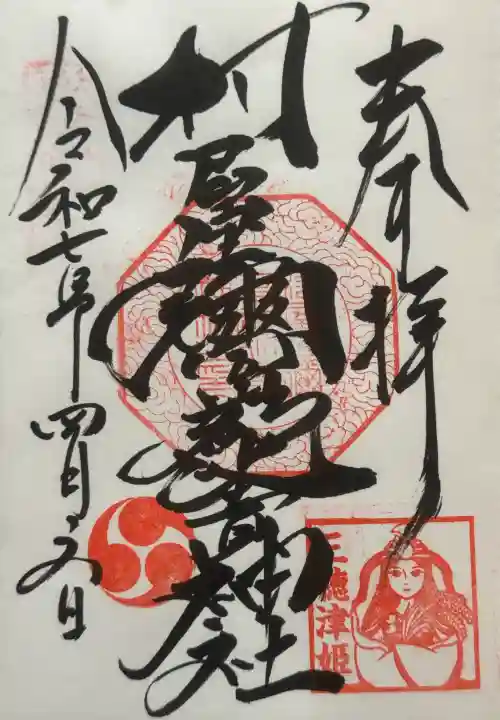 奉拝
村屋坐彌冨都比賣神社
令和七年四月六日
三穂津姫